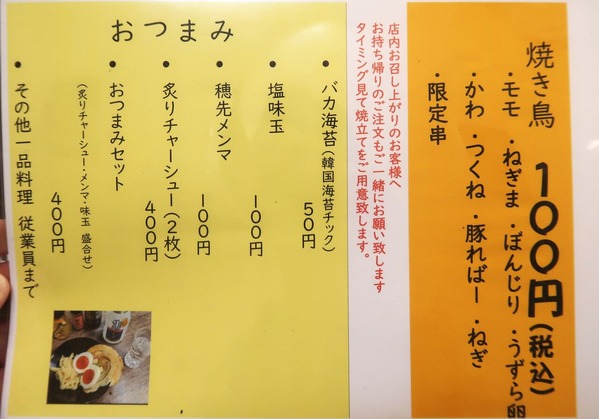 焼き鳥 100円(税込)
・モモ ・ねぎま ・ぼんじり ・うずら卵
・かわ ・つくね ・豚ればー ・ねぎ
・限定串
店内お召し上がりのお客様へ
お持ち帰りのご注文もご一緒にお願い致します
タイミング見て焼立てをご用意致します。
おつまみ
• バカ海苔(韓国海苔チック) 50円
• 塩味玉 100円
• 穂先メンマ 100円
• 炙りチャーシュー(2枚) 400円
• おつまみセット
(炙りチャーシュー・メンマ・味玉 盛合せ)
400円
• その他一品料理 従業員まで